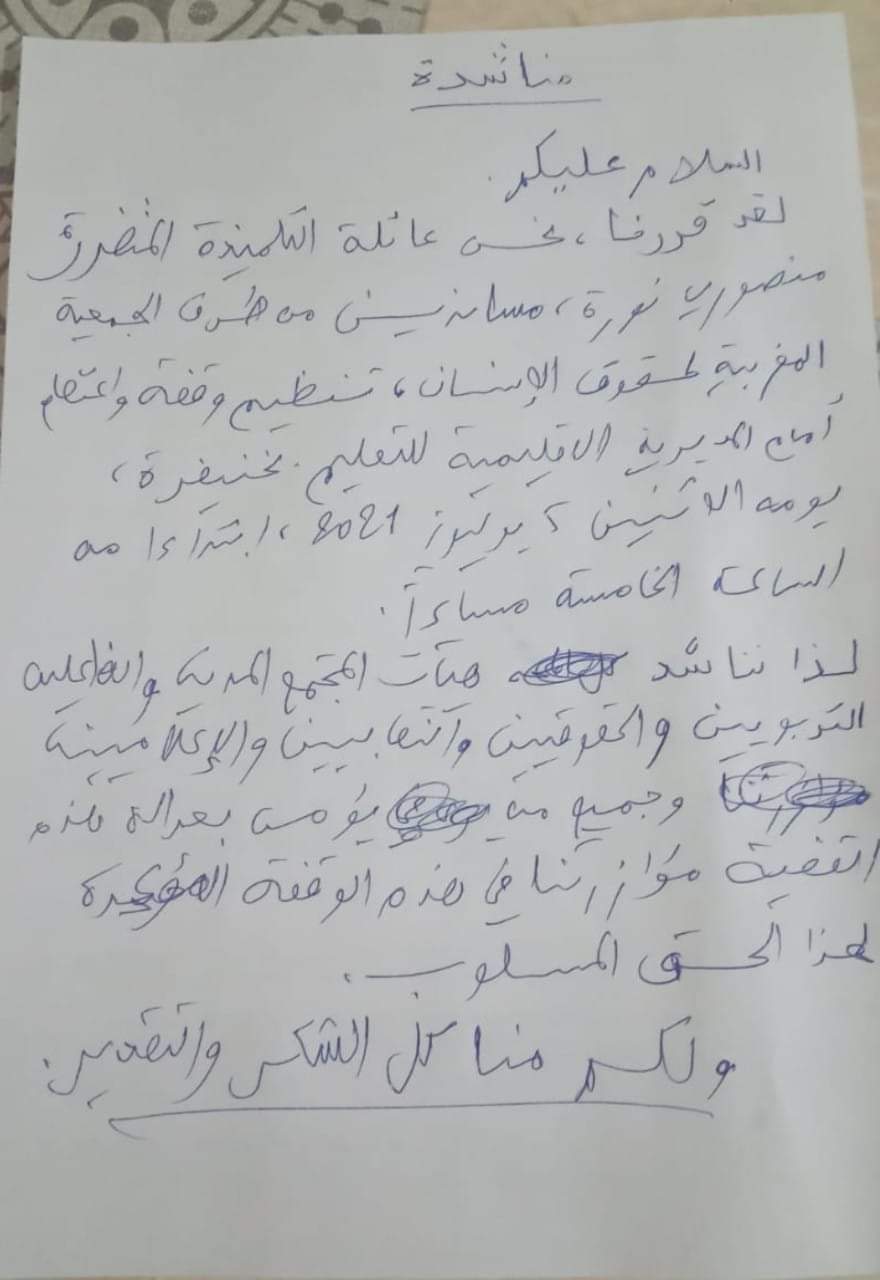 مناشدة
السلام عليكم.
لقد قررنا، نحن عائلة التلميذة المتضررة
منصوري نورة، مساندين من طرف الجمعية
المغربية لحقوق الإنسان، تنظيم وقفة واعتصام
أمام المديرية الاقليمية للتعليم بخنيفرة،
يومه الاثنين يوليوز 2021، ابتداءا من
الساعة الخامسة مساءاً.
لذا نناشد هيآت المجتمع المدني والفاعلين
التربويين والحقوقيين والنقابيين والإعلاميين
وجميع من يؤمن بعدالة هذه
القضية مؤازرتنا في هذه الوقفة
لهذا الحق المسلوب.
ولكم منا كل الشكر والتقدير.